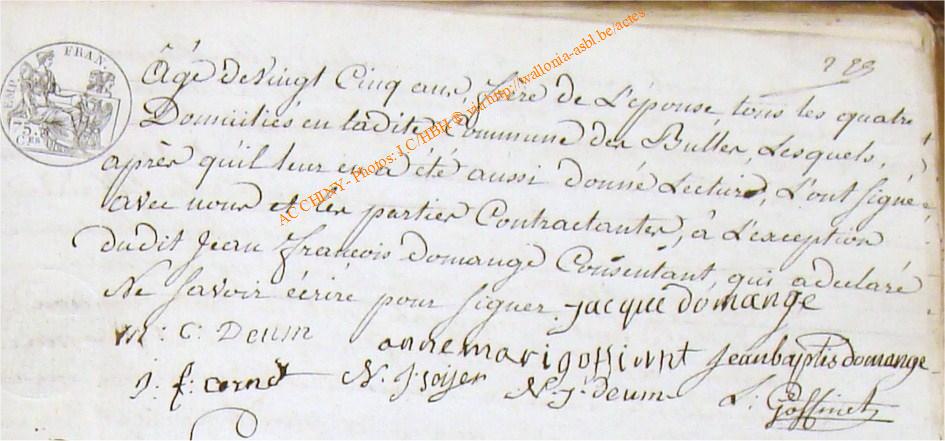 EMP. FRAN.
75
Ces
AC CHINY - Photos: J.C/HBH © via http://wallonia-asbl.be/actes
agé de vingt Cinq ans, frere de L'épouse, tous les quatre
Domiciliés en ladite Commune des Bulles, Lesquels,
après qu'il leur en a été aussi donné Lecture, L'ont signé
avec nous et les parties Contractantes, à L'exception
dudit Jean françois domange Consentant, qui a declaré
Ne savoir écrire pour signer. jacque domange
m: C: Deum annemarigoffiont jeanbaptis domange
j. f. cornet N. J. soiser N. J. deum L. Goffinet